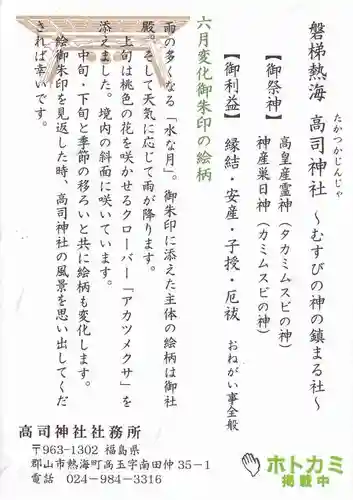 磐梯熱海 高司神社 ~むすびの神の鎮まる社~
たかつかじんじゃ
【御祭神】 高皇産霊神(タカミムスビの神)
神産巣日神(カミムスビの神)
【御利益】 縁結・安産・子授・厄祓 おねがい事全般
六月変化御朱印の絵柄
雨の多くなる「水な月」。御朱印に添えた主体の絵柄は御社
殿。そして天気に応じて雨が降ります。
上旬は桃色の花を咲かせるクローバー「アカツメクサ」を
添えました。境内の斜面に咲いています。
中旬・下旬と季節の移ろいと共に絵柄も変化します。
絵御朱印を見返した時、高司神社の風景を思い出してくだ
されば幸いです。
高司神社社務所
〒963-1302 福島県
郡山市熱海町高玉字南田仲35-1
電話 024-984-3316
ホトカミ
掲載中